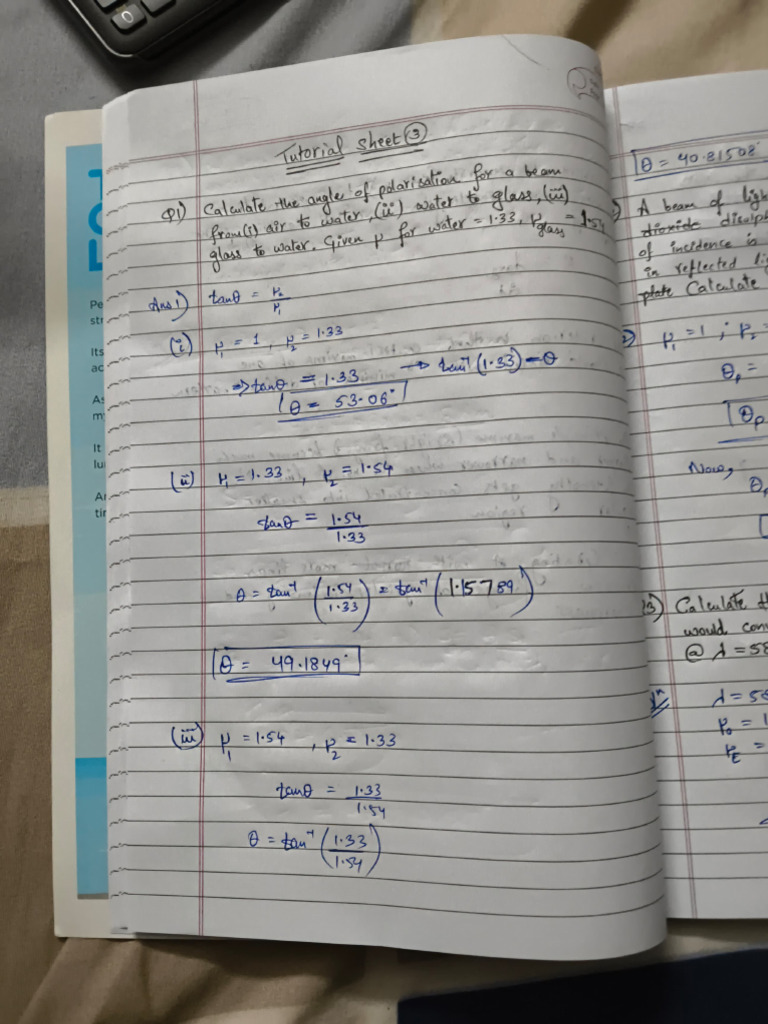 Tutorial Sheet ③
Q1) Calculate the angle of polarisation for a beam
from (i) air to water, (ii) water to glass, (iii)
glass to water. Given μ for water = 1.33, μglass = 1.54
Ans1) tanθ = μ₂/μ₁
(i) μ₁ = 1 , μ₂ = 1.33
⇒ tanθ = 1.33 → tan⁻¹(1.33) = θ
θ = 53.06°
(ii) μ₁ = 1.33 , μ₂ = 1.54
tanθ = 1.54/1.33
θ = tan⁻¹(1.54/1.33) = tan⁻¹(1.15789)
θ = 49.1849°
(iii) μ₁ = 1.54 , μ₂ = 1.33
tanθ = 1.33/1.54
θ = tan⁻¹(1.33/1.54)
θ = 40.81508°
A beam of
of incidence is
in reflected
plate Calculate
μ₁ = 1 ; μ₂ =
θp =
θp
Now,
3) Calculate
would
@ λ = 58
λ = 58
μo = 1
μE =
Pe
str
Its
ac
As
m
It
lu
tin
0